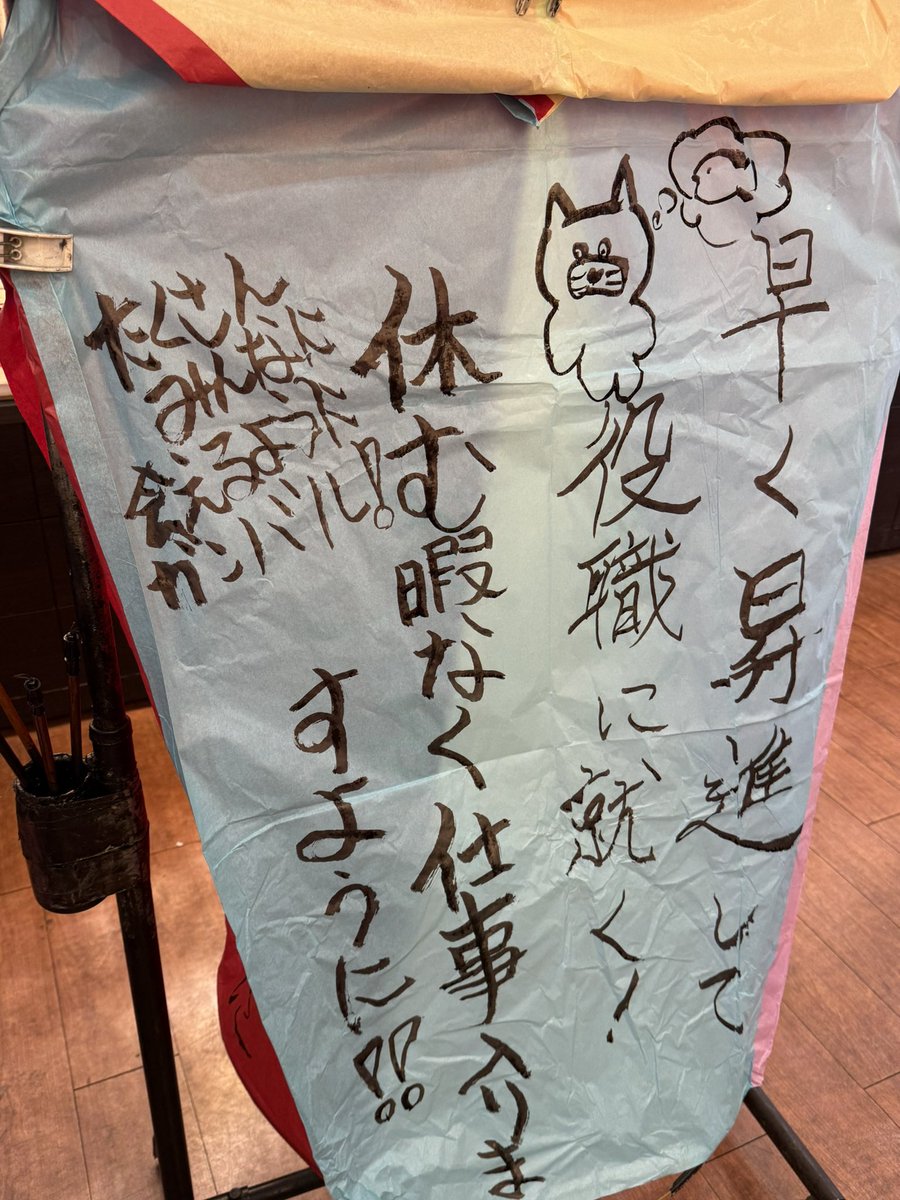 早く昇進して
役職に就く!
休む暇なく仕事入りま
すように!!
たくさん
みんなに
会えるように
ガンバル!!